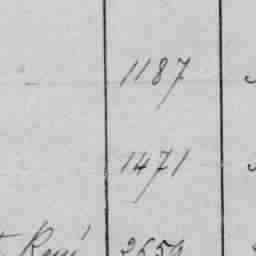 1187
1471
René 2659